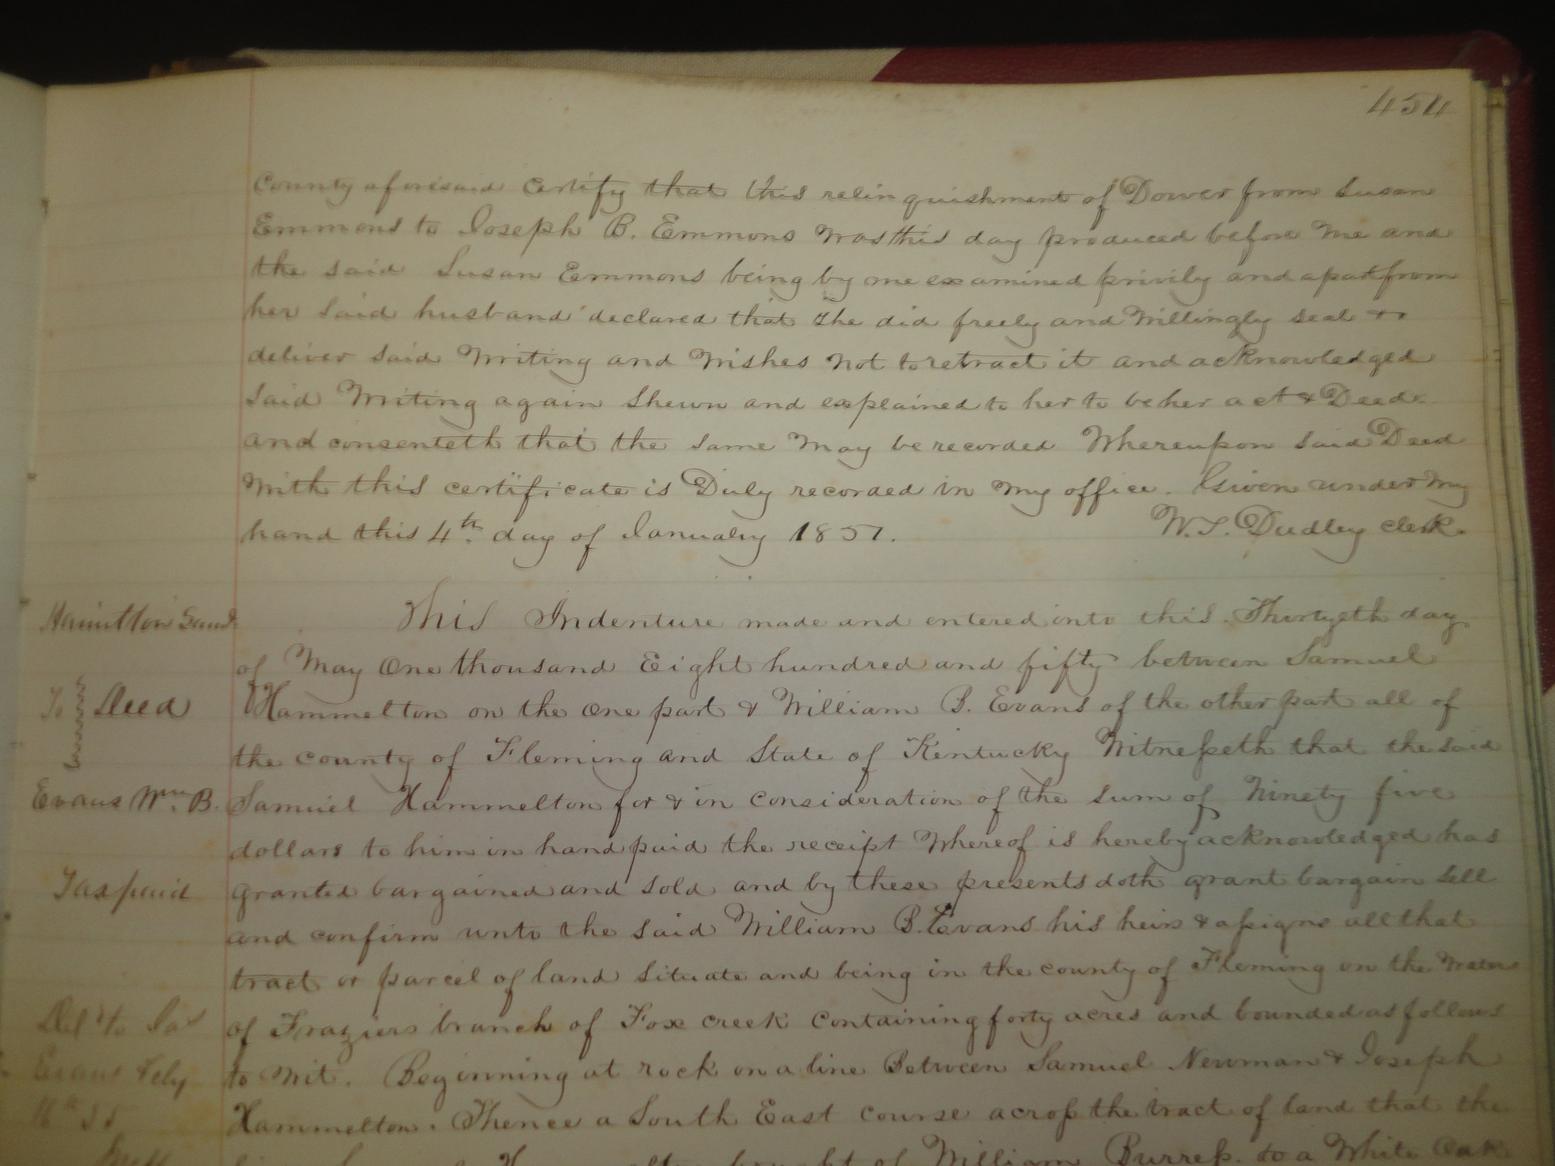 454
County aforesaid certify that this relinquishment of Dower from Susan
Emmons to Joseph B. Emmons was this day produced before me and
the said Susan Emmons being by me examined privily and apart from
her said husband declared that she did freely and willingly seal &
deliver said writing and wishes not to retract it and acknowledged
said writing again shewn and explained to her to be her act & Deed
and consenteth that the same may be recorded Whereupon said Deed
with this certificate is Duly recorded in my office. Given under my
hand this 4th day of January 1851.
W. T. Dudley clerk.
Hamilton Saml
This Indenture made and entered into this Thirtyeth day
of May One thousand Eight hundred and fifty between Samuel
To Deed
Hammelton on the one part & William B. Evans of the other part all of
the county of Fleming and State of Kentucky Witnesseth that the said
Evans Wm B.
Samuel Hammelton for & in consideration of the sum of Ninety five
dollars to him in hand paid the receipt whereof is hereby acknowledged has
Tax paid
granted bargained and sold and by these presents doth grant bargain sell
and confirm unto the said William B. Evans his heirs & assigns all that
tract or parcel of land situate and being in the county of Fleming on the waters
Del to
of Fraziers branch of Fox creek containing forty acres and bounded as follows
Evans Feby
to wit. Beginning at rock on a line Between Samuel Newman & Joseph
Hammelton. Thence a South East course across the tract of land that the
bought of William Burress. to a White Oak